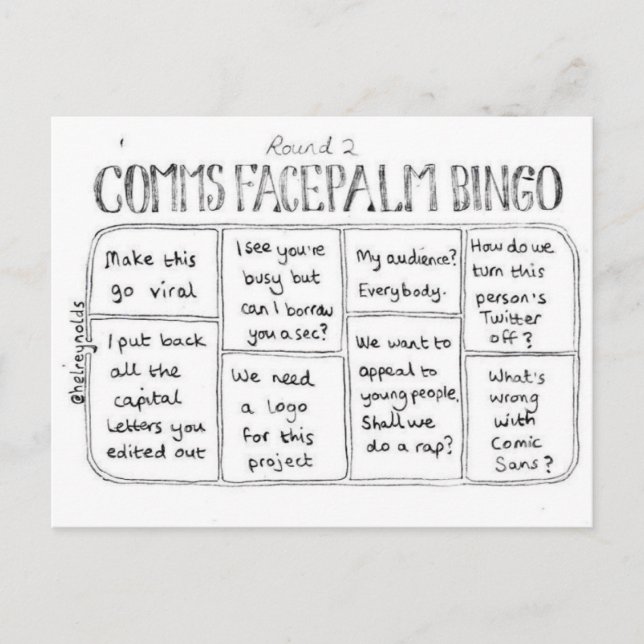 Round 2
COMMS FACEPALM BINGO
Make this
go viral
I see you're
busy but
can I borrow
you a sec?
My audience?
Everybody.
How do we
turn this
person's
Twitter
off?
I put back
all the
capital
letters you
edited out
We need
a logo
for this
project
We want to
appeal to
young people.
Shall we
do a rap?
What's
wrong
with
Comic
Sans?
@helreynolds